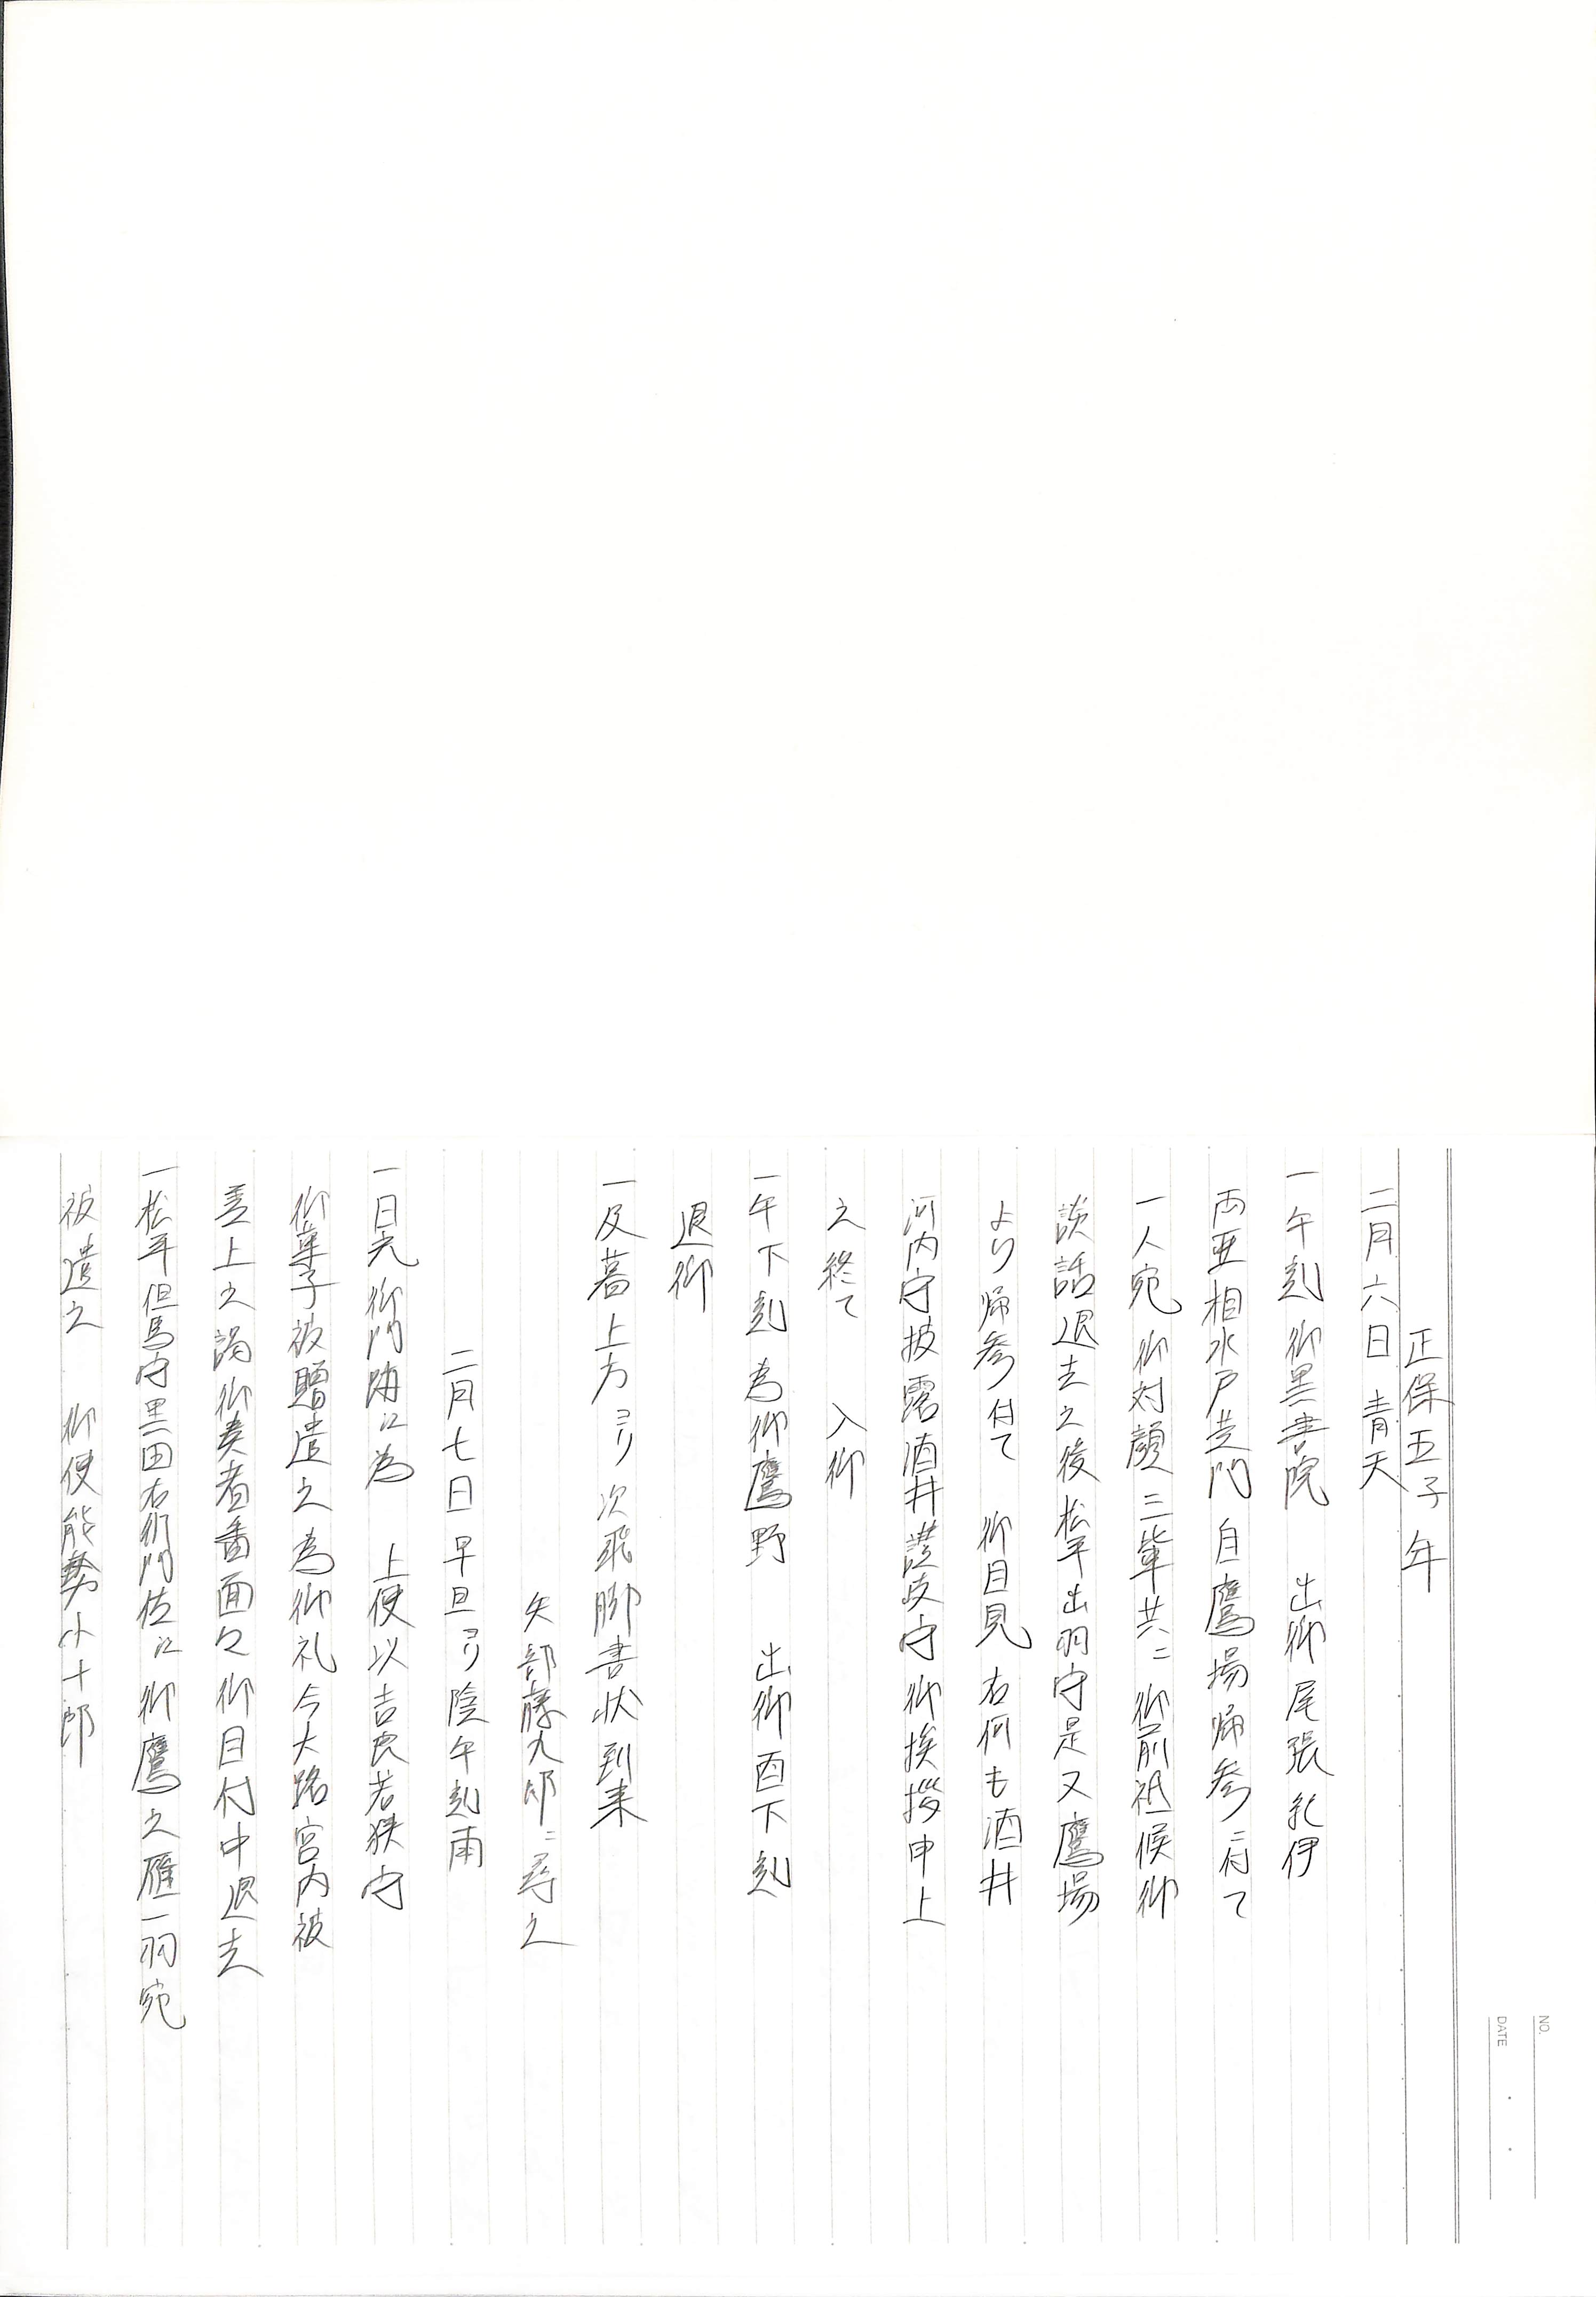 NO.
DATE
正保五子年
二月六日 青天
一午刻御黒書院 出御尾張紀伊
両亜相水戸黄門自鷹場帰参ニ付て
一人宛御対顔三輩共ニ 御前祗候御
談話退去之後松平出羽守是又鷹場
より帰参付て 御目見右何も酒井
河内守披露酒井讃岐守御挨拶申上
之終て 入御
一午下刻為御鷹野 出御酉下刻
退御
一及暮上方ヨリ次飛脚書状到来
矢部藤九郎ニ尋之
二月七日早旦ヨリ陰午刻雨
一日光御門跡江為 上使以吉良若狭守
御菓子被贈遣之為御礼今大路宮内被
差上之謁御奏者番面々御目付中退去
一松平但馬守黒田右衛門佐江御鷹之雁一羽宛
被遣之 御使能勢小十郎